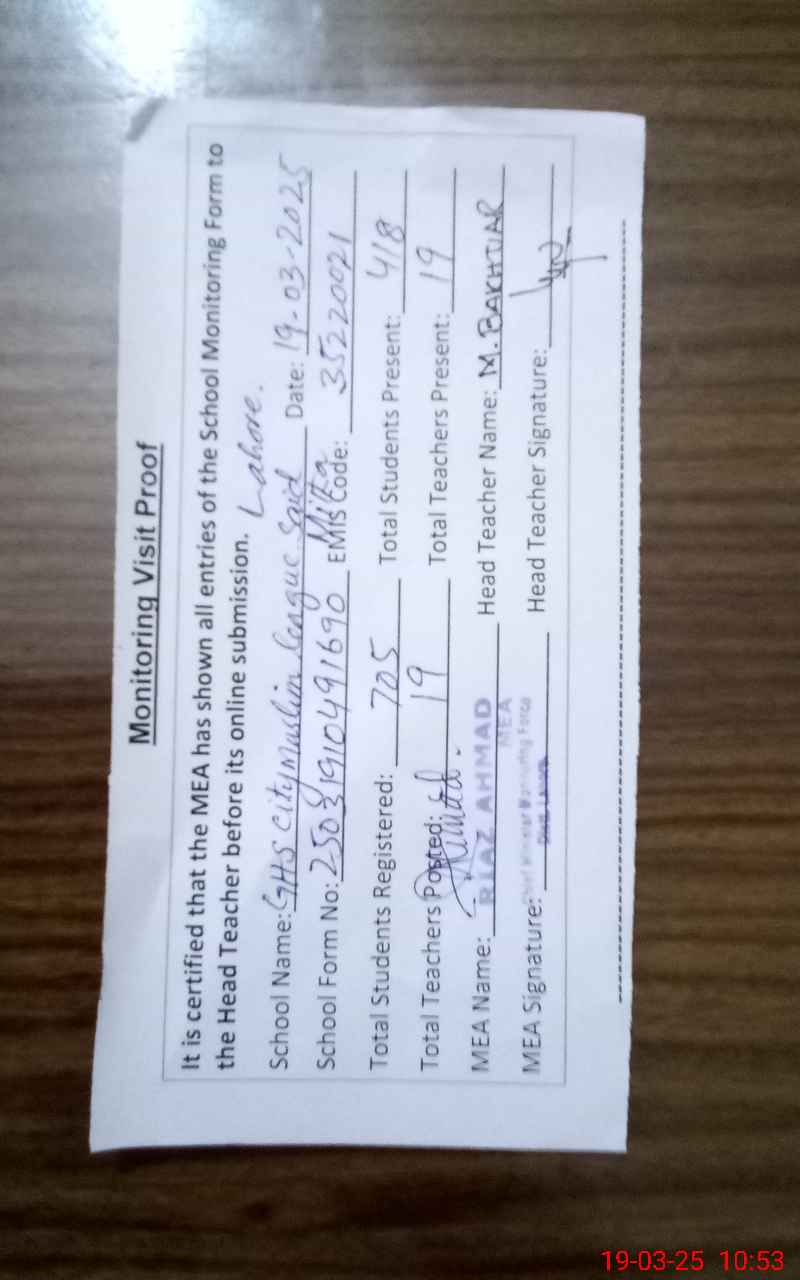 Monitoring Visit Proof
It is certified that the MEA has shown all entries of the School Monitoring Form to
the Head Teacher before its online submission. Lahore.
School Name: GHS City Muslim League Said Mitha Date: 19-03-2025
School Form No: EMIS Code: 35220021
Total Students Registered: 705 Total Students Present: 418
Total Teachers Posted: 19 Total Teachers Present: 19
MEA Name: RIAZ AHMAD Head Teacher Name: M. BAKHTIAR
MEA
MEA Signature: Chief Minister Monitoring Force Head Teacher Signature:
19-03-25 10:53